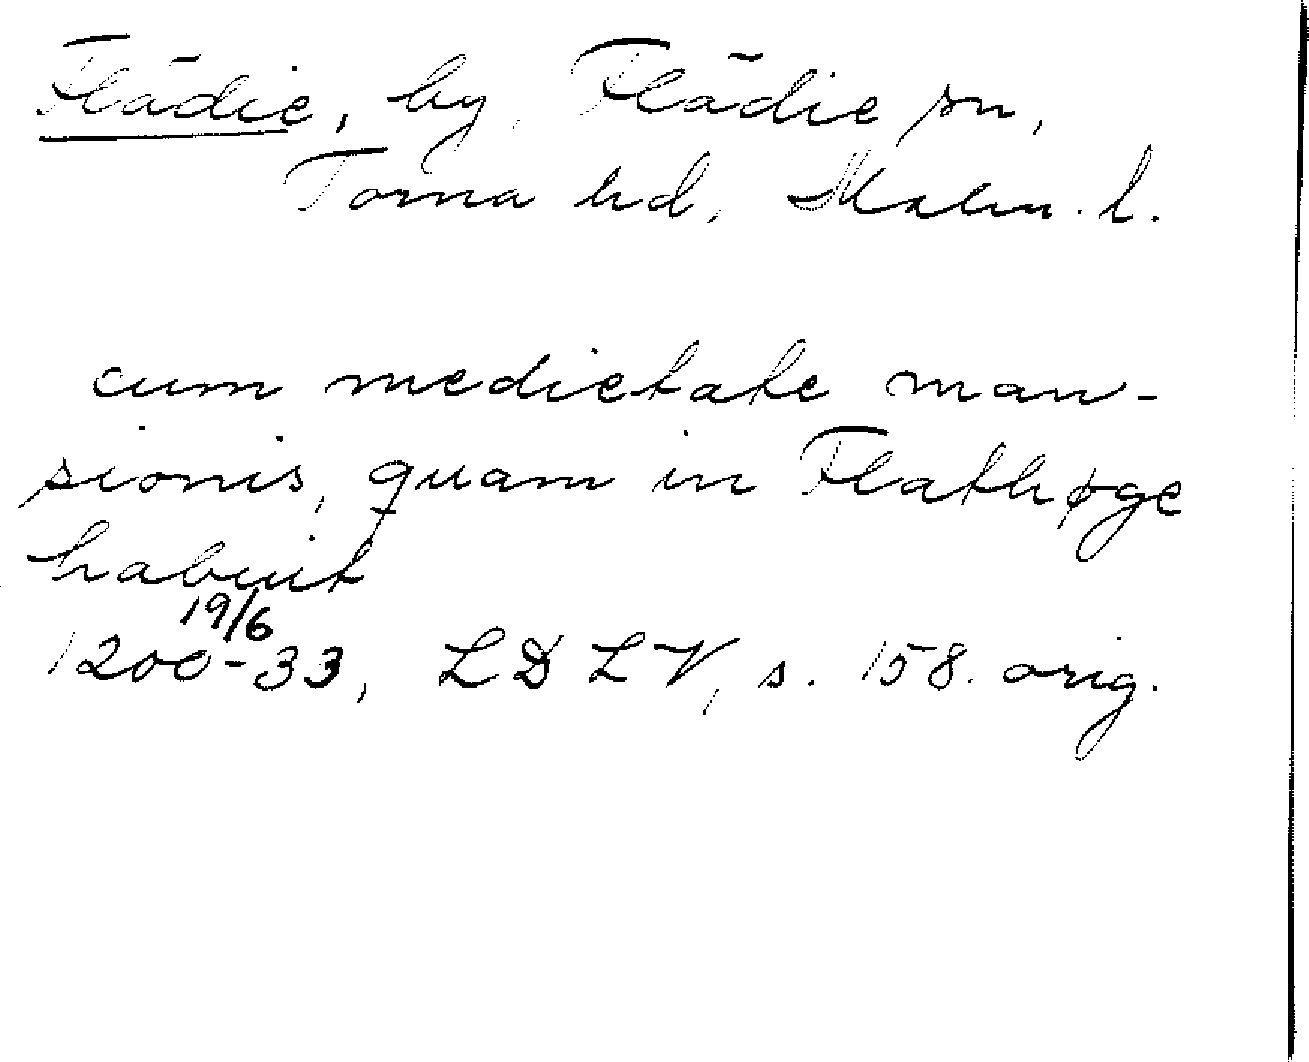 Flädie, by, Flädie sn,
Torna hd, Malm. l.
cum medietate man-
sionis, quam in Flathøge
habuit
19/6
1200-33, LDLV, s. 158. orig.